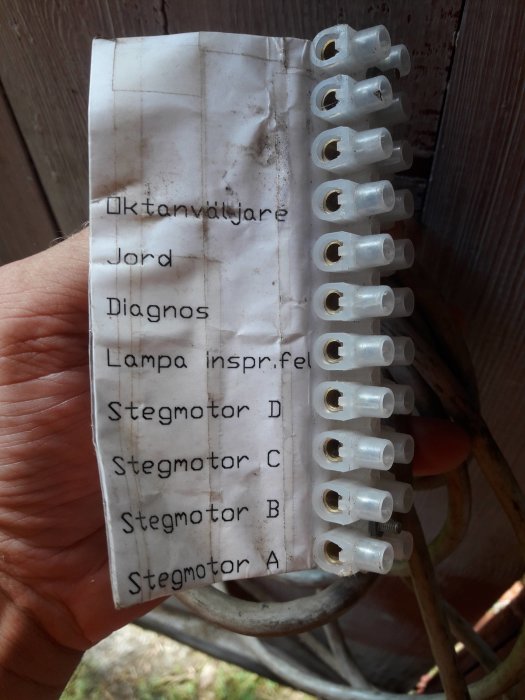 Oktanväljare
Jord
Diagnos
Lampa inspr.fel
Stegmotor D
Stegmotor C
Stegmotor B
Stegmotor A